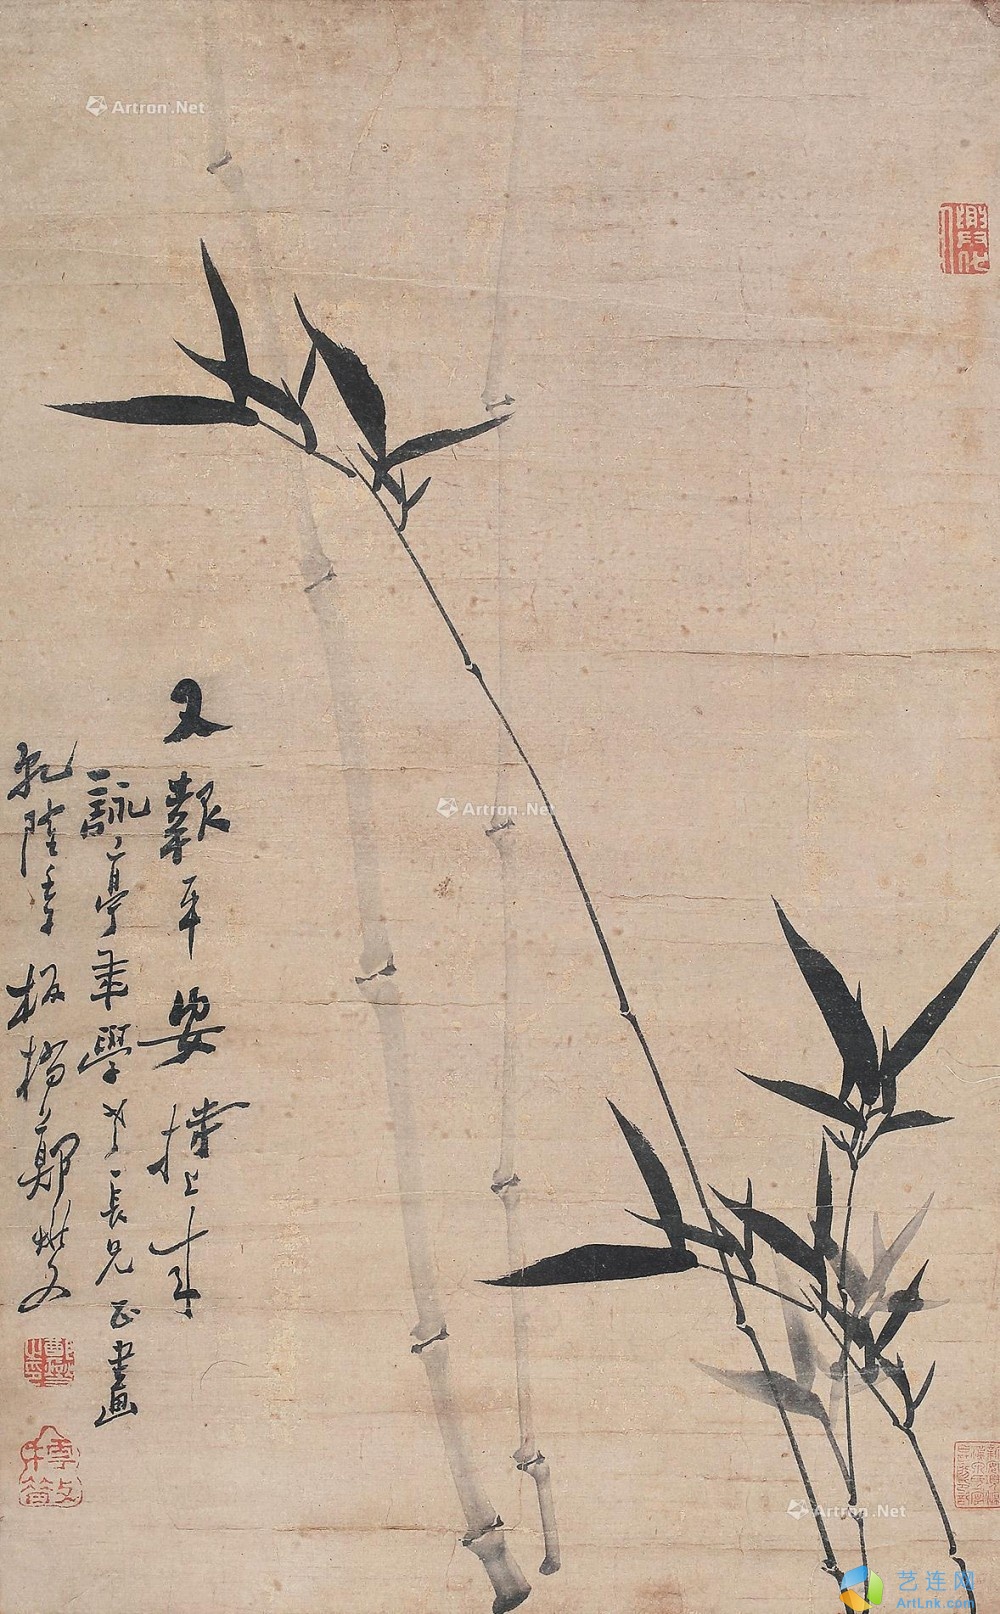 又報平安擡上來
詠亭年學老長兄正畫
乾隆年板橋鄭燮又
Artron.Net
Artron.Net
Artron.Net
艺连网
ArtLnk.com